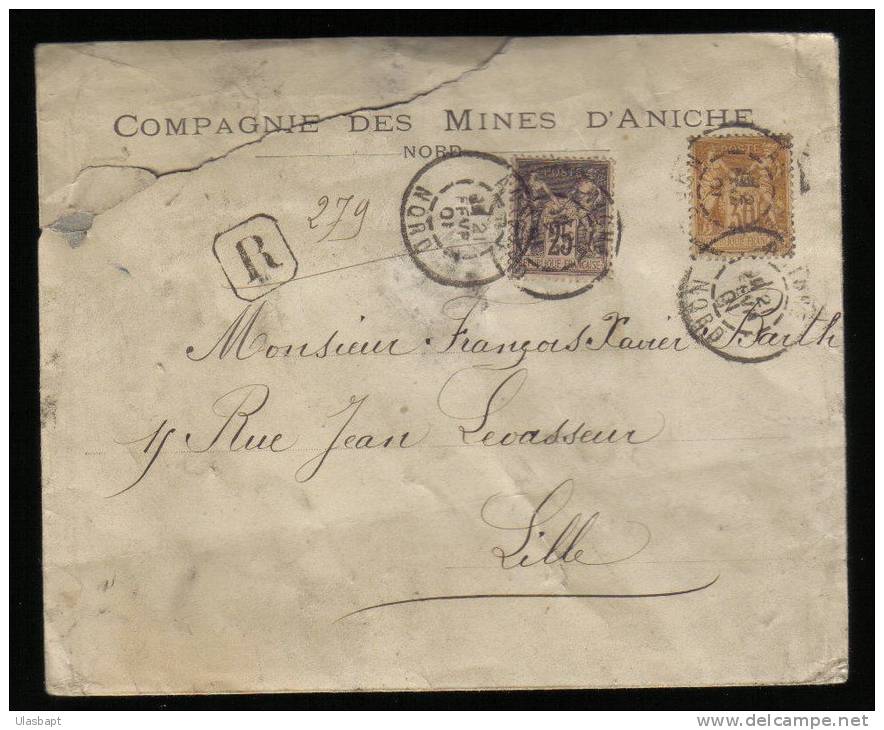 COMPAGNIE DES MINES D'ANICHE
NORD
R
279
NORD
21
FEVR
01
POSTE
25
REPUBLIQUE FRANÇAISE
30
NORD
Monsieur François Xavier Barth
15 Rue Jean Levasseur
Lille
Ulasbapt
www.delcampe.net